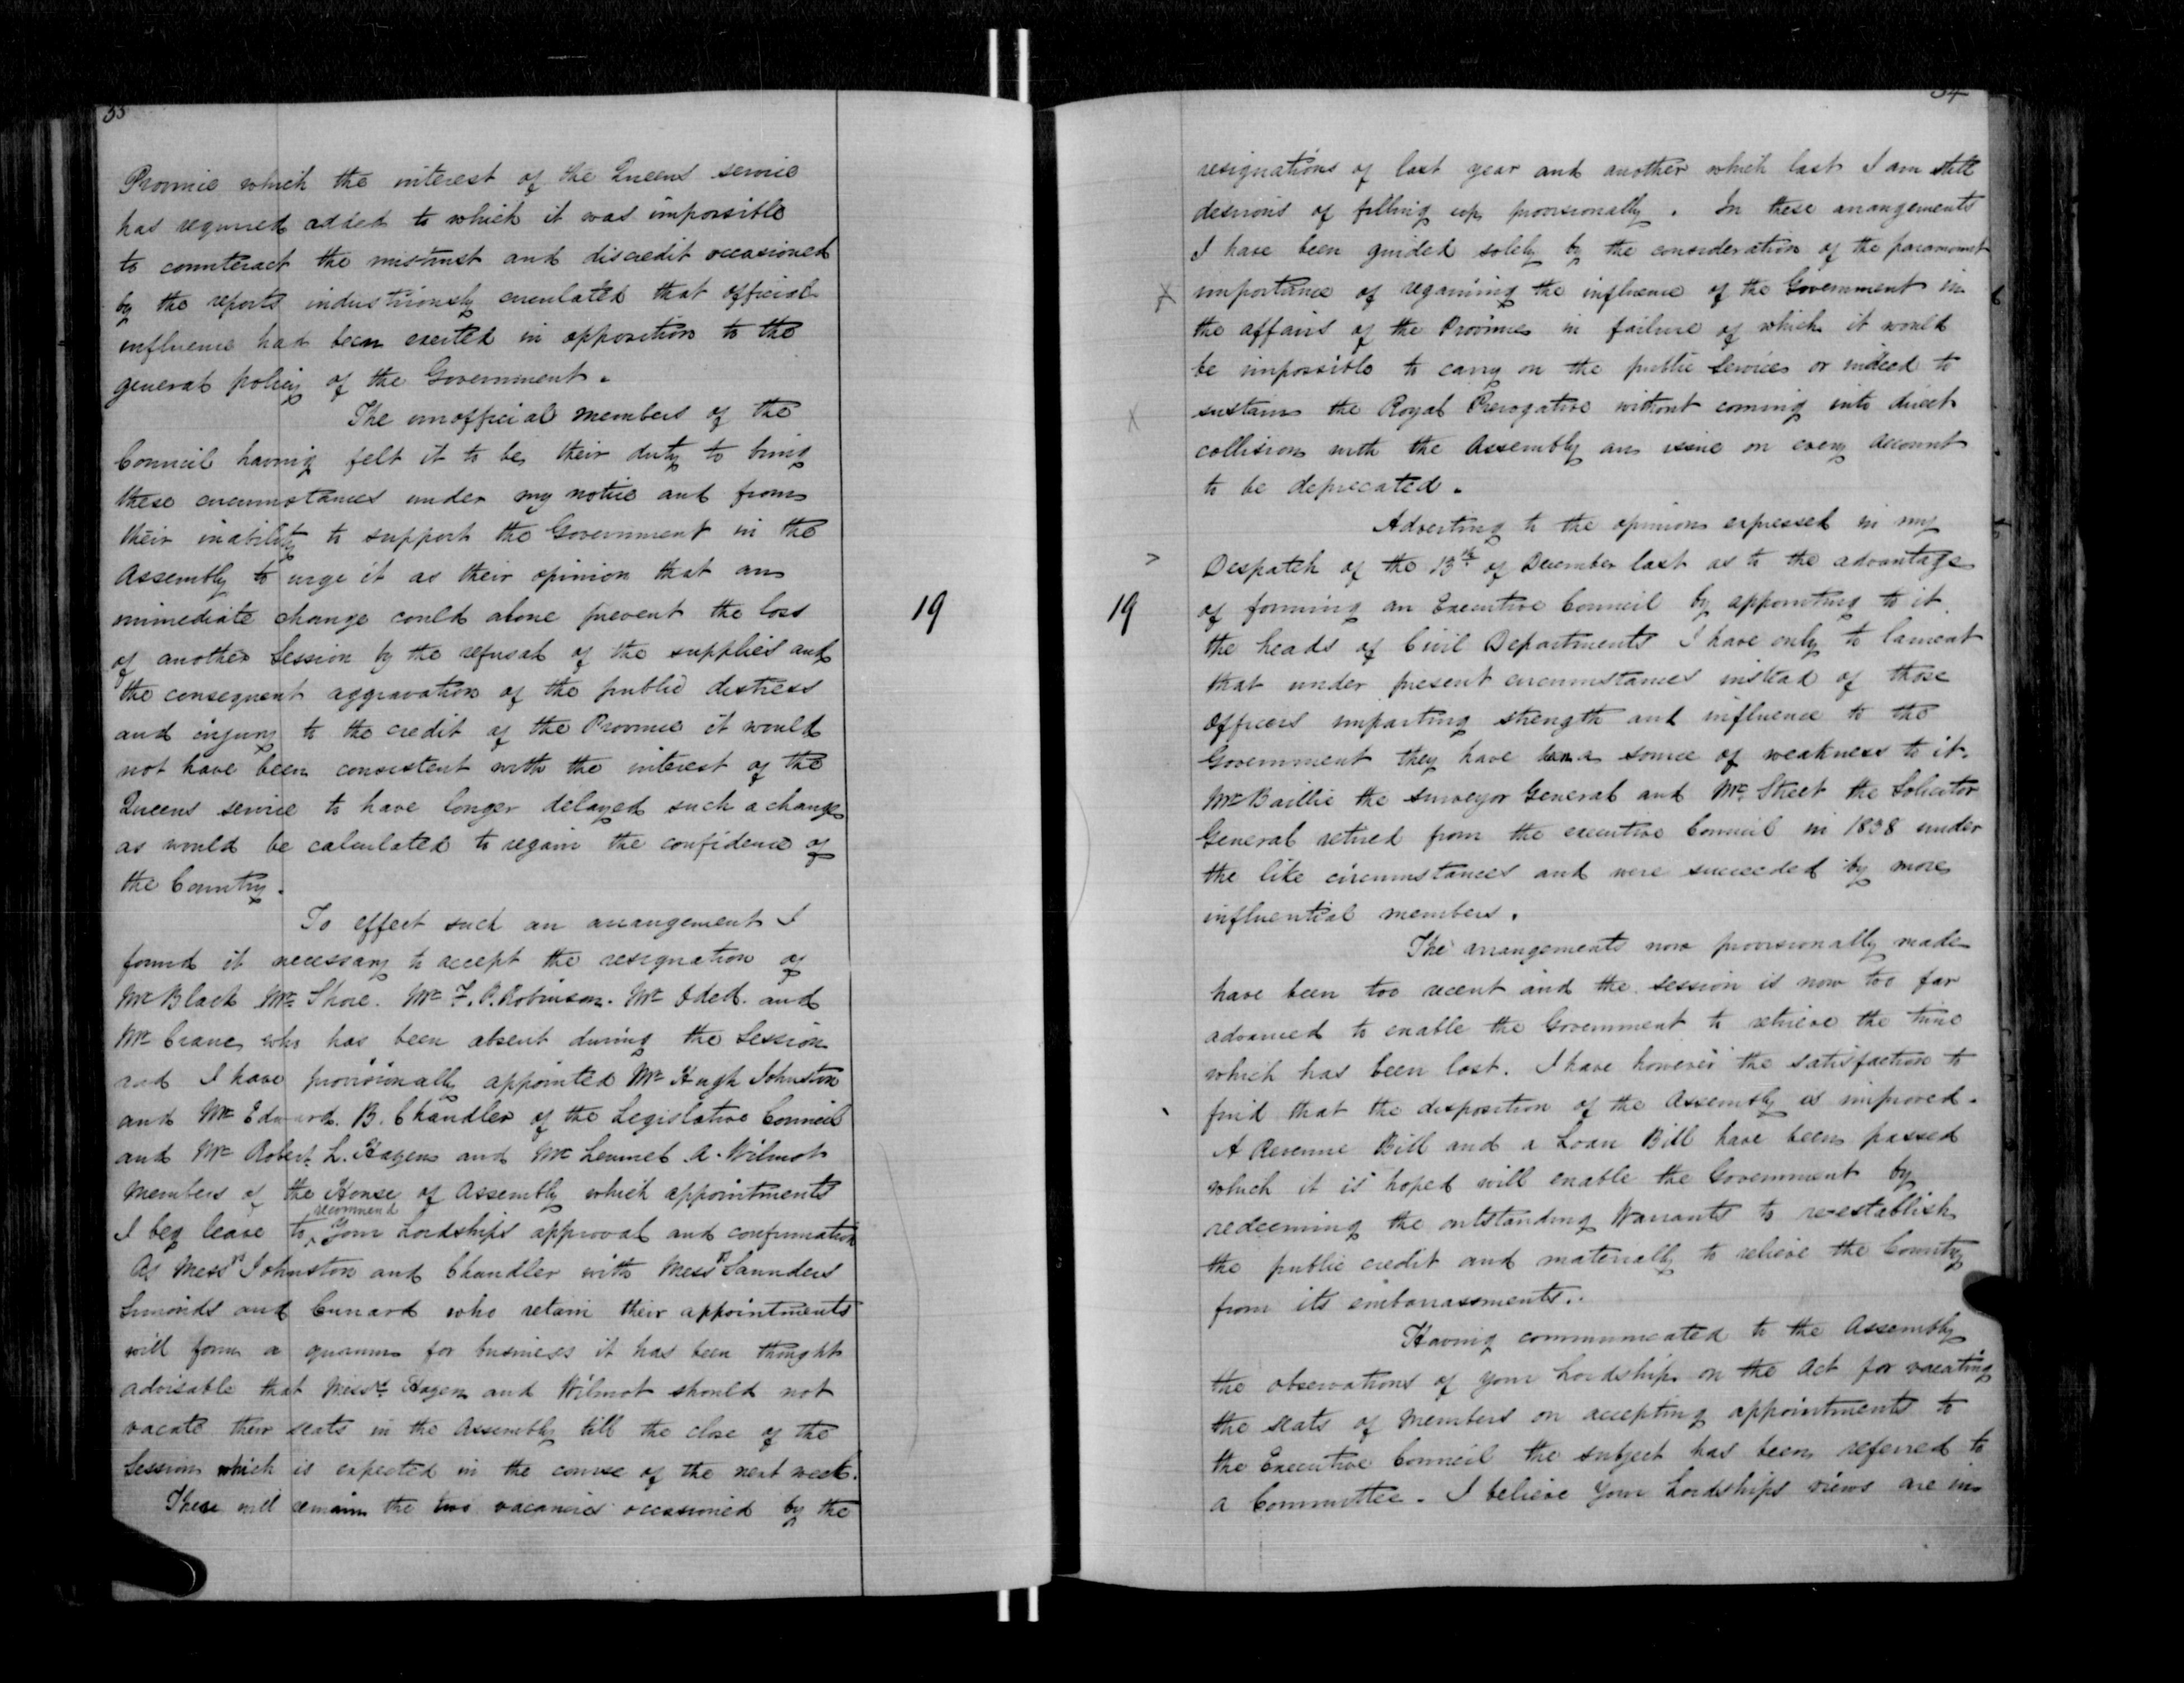 33
Province which the interest of the Queens service
has required added to which it was impossible
to counteract the mistrust and discredit occasioned
by the reports industriously circulated that official
influence had been exerted in opposition to the
general policy of the Government.
The unofficial members of the
Council having felt it to be their duty to bring
these circumstances under my notice and from
their inability to support the Government in the
Assembly to urge it as their opinion that an
immediate change could alone prevent the loss
of another Session by the refusal of the supplies and
the consequent aggravation of the public distress
and injury to the credit of the Province it would
not have been consistent with the interest of the
Queens service to have longer delayed such a change
as would be calculated to regain the confidence of
the Country.
To effect such an arrangement I
found it necessary to accept the resignation of
Mr Black Mr Shore. Mr F. P. Robinson. Mr Odell. and
Mr Crane who has been absent during the Session
and I have provisionally appointed Mr Hugh Johnston
and Mr Edward. B. Chandler of the Legislative Council
and Mr Robert L. Hazen and Mr Lemuel A. Wilmot
members of the House of Assembly which appointments
I beg leave to recommend Your Lordships approval and confirmation
As Messrs Johnston and Chandler with Messrs Saunders
Simonds and Cunard who retain their appointments
will form a quorum for business it has been thought
advisable that Messrs Hazen and Wilmot should not
vacate their seats in the Assembly till the close of the
Session which is expected in the course of the next week.
There will remain the two vacancies occasioned by the
19
34
resignations of last year and another which last I am still
desirous of filling up provisionally. In these arrangements
I have been guided solely by the consideration of the paramount
importance of regaining the influence of the Government in
the affairs of the Province in failure of which it would
be impossible to carry on the public Services or indeed to
sustain the Royal Prerogative without coming into direct
collision with the Assembly an issue on every account
to be deprecated.
Adverting to the opinion expressed in my
Despatch of the 13th of December last as to the advantage
19
of forming an Executive Council by appointing to it
the heads of Civil Departments I have only to lament
that under present circumstances instead of those
Officers imparting strength and influence to the
Government they have been a source of weakness to it.
Mr Baillie the Surveyor General and Mr Street the Solicitor
General retired from the executive Council in 1838 under
the like circumstances and were succeeded by more
influential members.
The arrangements now provisionally made
have been too recent and the session is now too far
advanced to enable the Government to retrieve the time
which has been lost. I have however the satisfaction to
find that the disposition of the Assembly is improved.
A Revenue Bill and a Loan Bill have been passed
which it is hoped will enable the Government by
redeeming the outstanding Warrants to re-establish
the public credit and materially to relieve the Country
from its embarrassments.
Having communicated to the Assembly
the observations of your Lordship on the Act for vacating
the seats of Members on accepting appointments to
the Executive Council the subject has been referred to
a Committee. I believe Your Lordships views are in